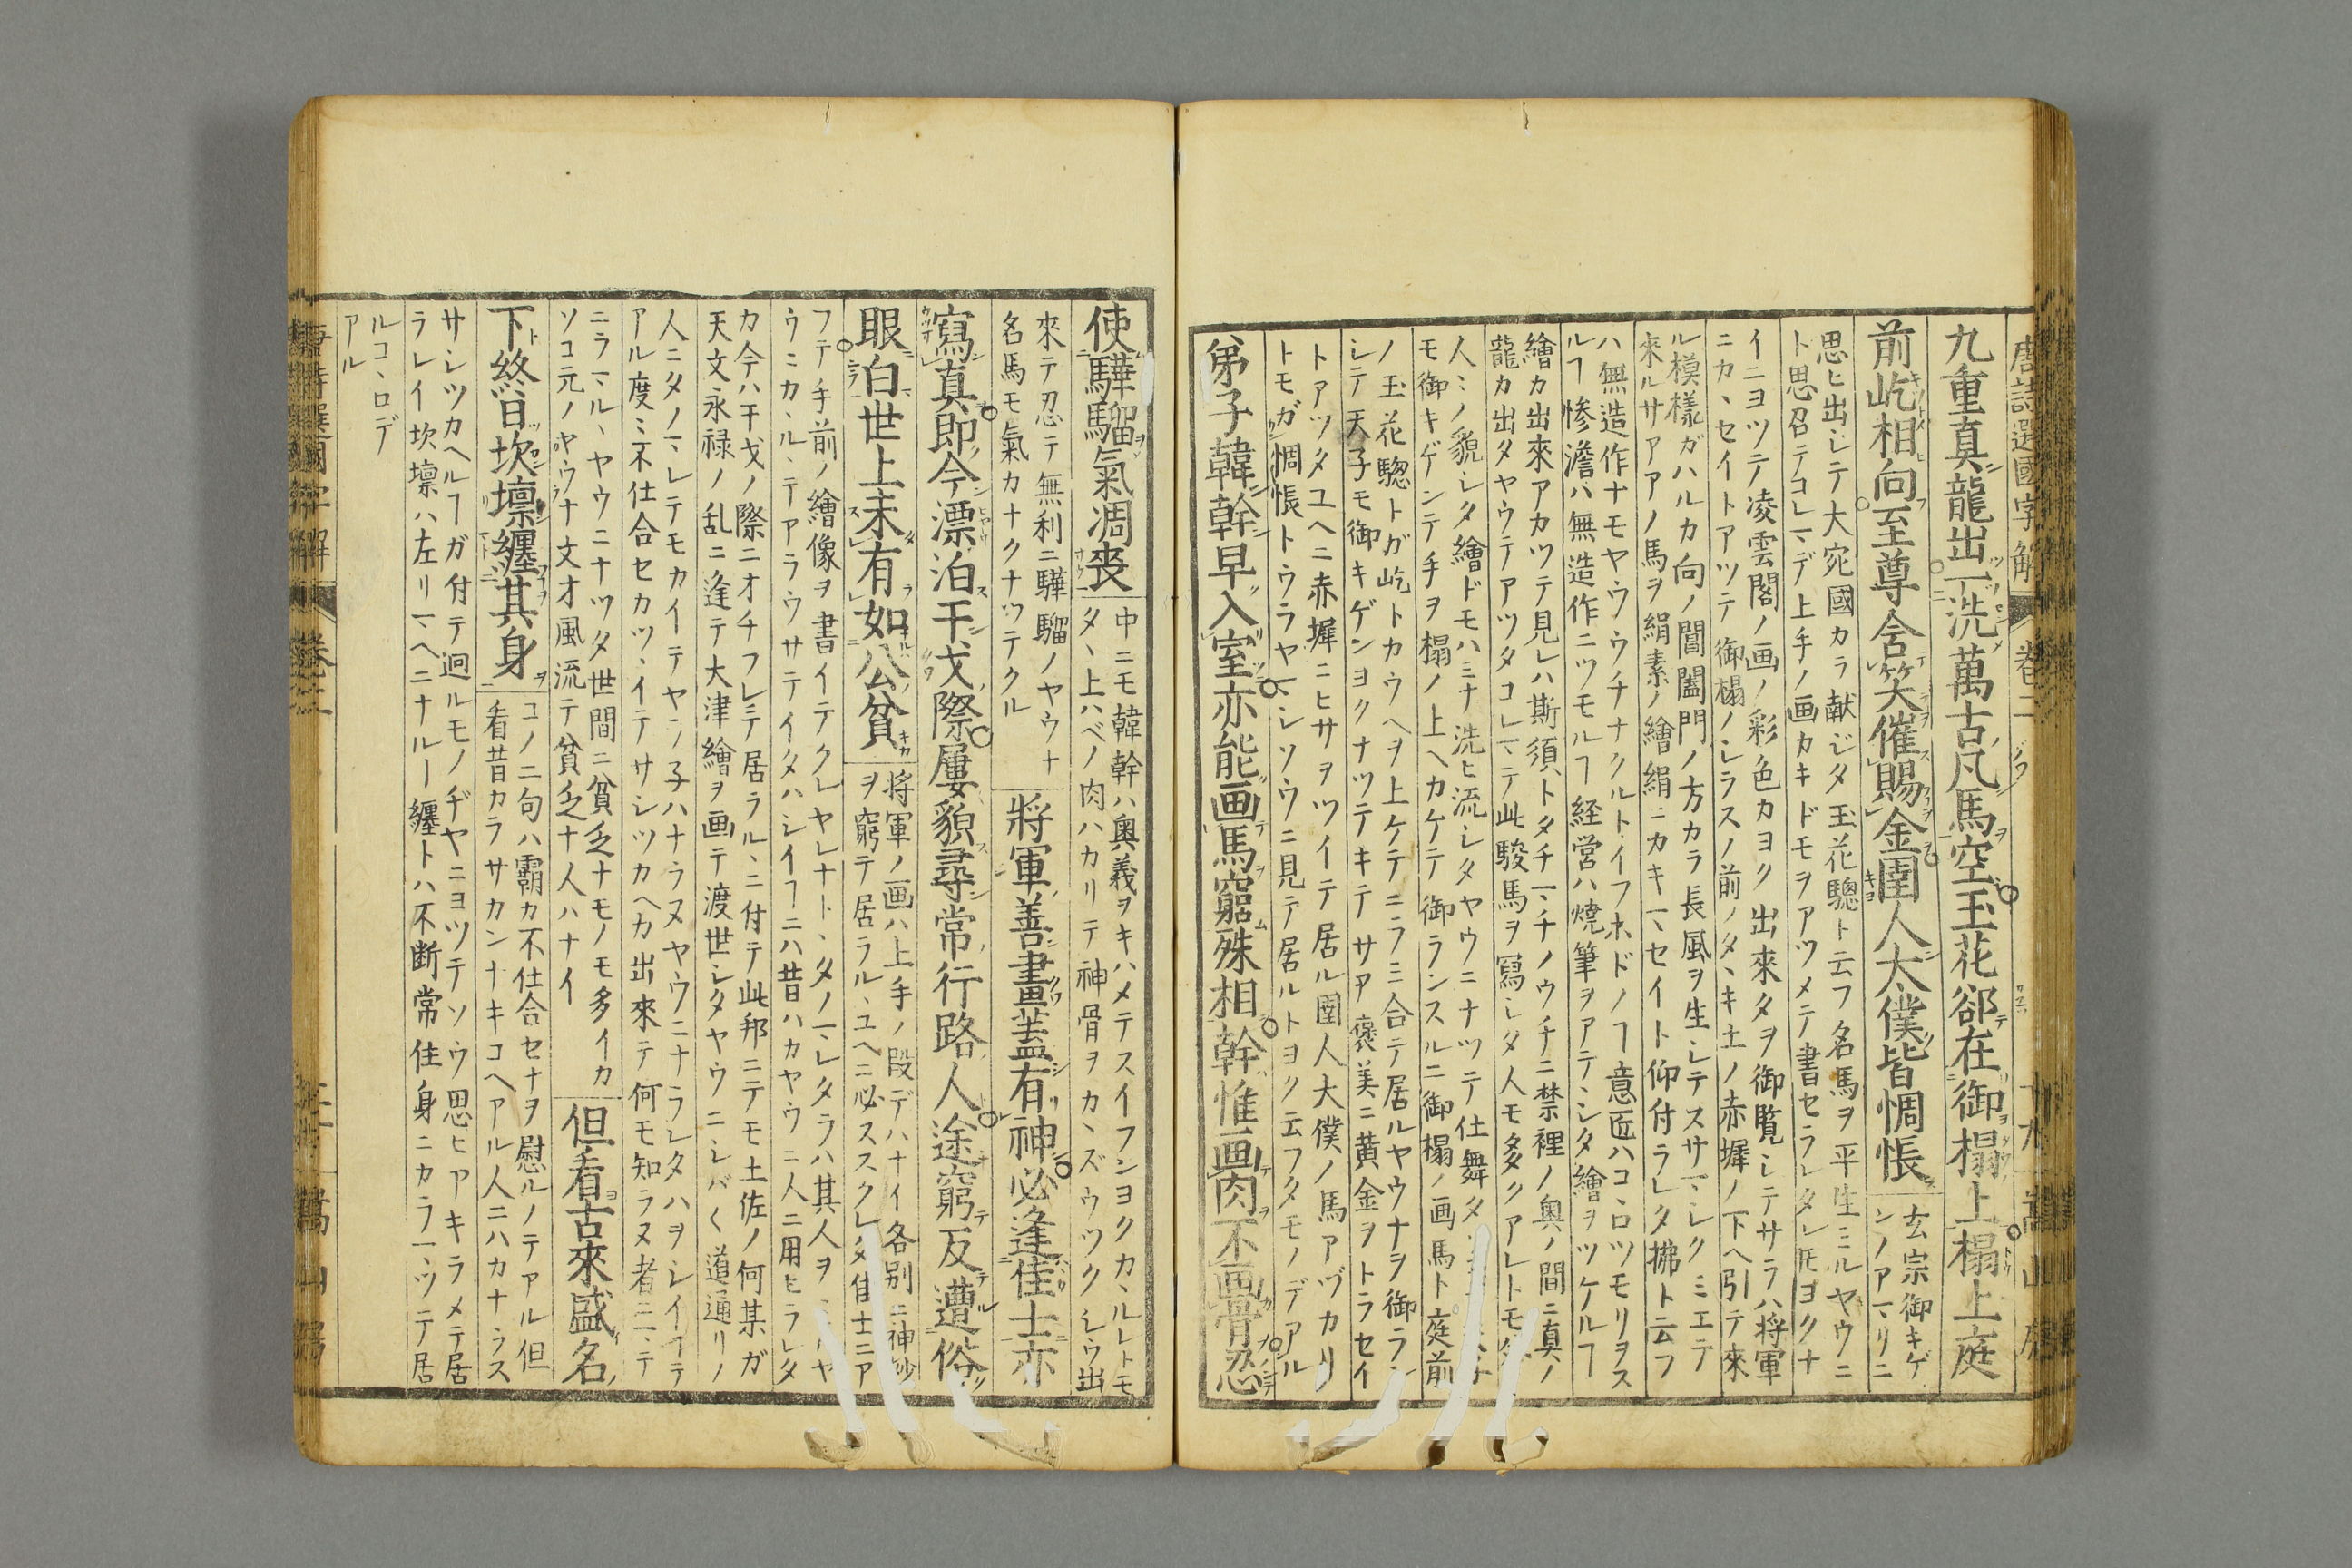 唐詩選國字解 卷二
九重真龍出一洗萬古凡馬空玉花郤在御榻上榻上庭
前屹相向至尊含笑催賜金圉人太僕皆惆悵
玄宗御キゲ
ンノアマリニ
思ヒ出シテ大宛國カラ献ジタ玉花驄ト云フ名馬ヲ平生ミルヤウニ
ト思召テコレマデ上手ノ画カキドモヲアツメテ書セラレタレ𪜈ヨクナ
イニヨツテ凌雲閣ノ画ノ彩色カヨク出來タヲ御覧シテサラハ将軍
ニカヽセイトアツテ御榻ノシラスノ前ノタヽキ土ノ赤墀ノ下ヘ引テ來
ル模樣ガハルカ向ノ閶闔門ノ方カラ長風ヲ生シテスサマシクミエテ
來ルサアアノ馬ヲ絹素ノ繪絹ニカキマセイト仰付ラレタ拂ト云フ
ハ無造作ナモヤウウチナクルトイフホドノヿ意匠ハコヽロツモリヲス
ルヿ惨澹ハ無造作ニツモルヿ経営ハ燒筆ヲアテヽシタ繪ヲツケルヿ
繪カ出來アカツテ見レハ斯須トタチマチノウチニ禁裡ノ奥ノ間ニ真ノ
龍カ出タヤウテアツタコレマテ此駿馬ヲ寫シタ人モ多クアレトモ
人ミノ貌シタ繪ドモハミナ洗ヒ流シタヤウニナツテ仕舞タ
モ御キゲンテ手ヲ榻ノ上ヘカケテ御ランスルニ御榻ノ画馬ト庭前
ノ玉花驄トガ屹トカウヘヲ上ケテニラミ合テ居ルヤウナヲ御ラン
シテ天子モ御キゲンヨクナツテキテサア褒美ニ黄金ヲトラセイ
トアツタユヘニ赤墀ニヒサヲツイテ居ル圉人大僕ノ馬アヅカリ
トモガ惆悵トウラヤマシソウニ見テ居ルトヨク云フタモノデアル
弟子韓幹早入室亦能画馬窮殊相幹惟画肉不画骨忍
使驊騮氣凋喪
中ニモ韓幹ハ奥義ヲキハメテスイフンヨクカヽルレトモ
タヽ上ハベノ肉ハカリテ神骨ヲカヽズウツクシウ出
來テ忍テ無利ニ驊騮ノヤウナ
名馬モ氣カナクナツテクル
將軍善畫蓋有神必逢佳士亦
寫真即今漂泊干戈際屢貌尋常行路人途窮反遭俗
眼白世上未有如公貧
将軍ノ画ハ上手ノ段デハナイ各別ニ神妙
ヲ窮テ居ラルヽユヘニ必ススクレタ佳士ニア
フテ手前ノ繪像ヲ書イテクレヤレナトヽタノマレタラハ其人ヲ
ウニカヽルヽテアラウサテイタハシイヿニハ昔ハカヤウニ人ニ用ヒラレタ
カ今ハ干戈ノ際ニオチフレテ居ラルヽニ付テ此邦ニテモ土佐ノ何某ガ
天文永禄ノ乱ニ逢テ大津繪ヲ画テ渡世シタヤウニシバ〱道通リノ
人ニタノマレテモカイテヤラ子ハナラヌヤウニナラレタハヲシイヿテ
アル度ミ不仕合セカツヽイテサシツカヘカ出來テ何モ知ラヌ者ニマテ
ニラマルヽヤウニナツタ世間ニ貧乏ナモノモ多イカ
ソコ元ノヤウナ文才風流テ貧乏ナ人ハナイ
但看古來盛名
下終日坎壈纏其身
コノ二句ハ霸カ不仕合セナヲ慰ルノテアル但
看昔カラサカンナキコヘアル人ニハカナラス
サシツカヘルヿガ付テ迴ルモノヂヤニヨツテソウ思ヒアキラメテ居
ラレイ坎壈ハ左リマヘニナルー纏トハ不断常住身ニカラマツテ居
ルコヽロデ
アル